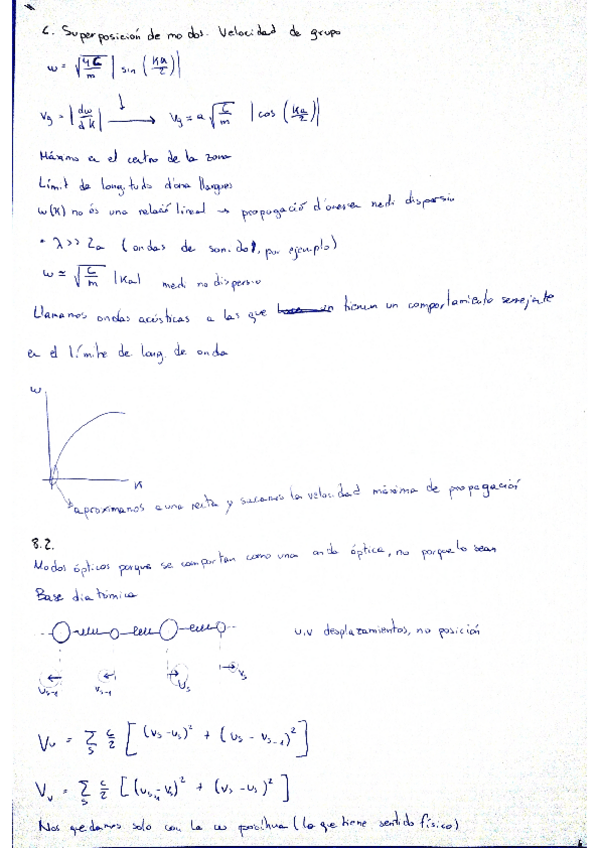 6. Superposición de modos. Velocidad de grupo
ω = √(4C/m) | sin (Ka/2) |
Vg = |dω/dK| → Vg = a √(C/m) | cos (Ka/2) |
Máximo en el centro de la zona
Límit de longitud d'ona llargues
ω(K) no és una relació lineal → propagació d'ones en medi dispersiu
• λ >> 2a (ondas de sonido, por ejemplo)
ω ≃ √(C/m) |Ka| medi no dispersiu
Llamamos ondas acústicas a las que tienen un comportamiento semejante
en el límite de long. de onda
ω
K
aproximamos a una recta y sacamos la velocidad máxima de propagación
8.2.
Modos ópticos porque se comportan como una onda óptica, no porque lo sean
Base diatómica
u,v desplazamientos, no posición
Us-1 Vs-1 Us Vs
Vu = Σs C/2 [ (vs - us)² + (us - vs-1)² ]
Vv = Σs C/2 [ (us+1 - vs)² + (vs - us)² ]
Nos quedamos solo con la ω positiva (la que tiene sentido físico)